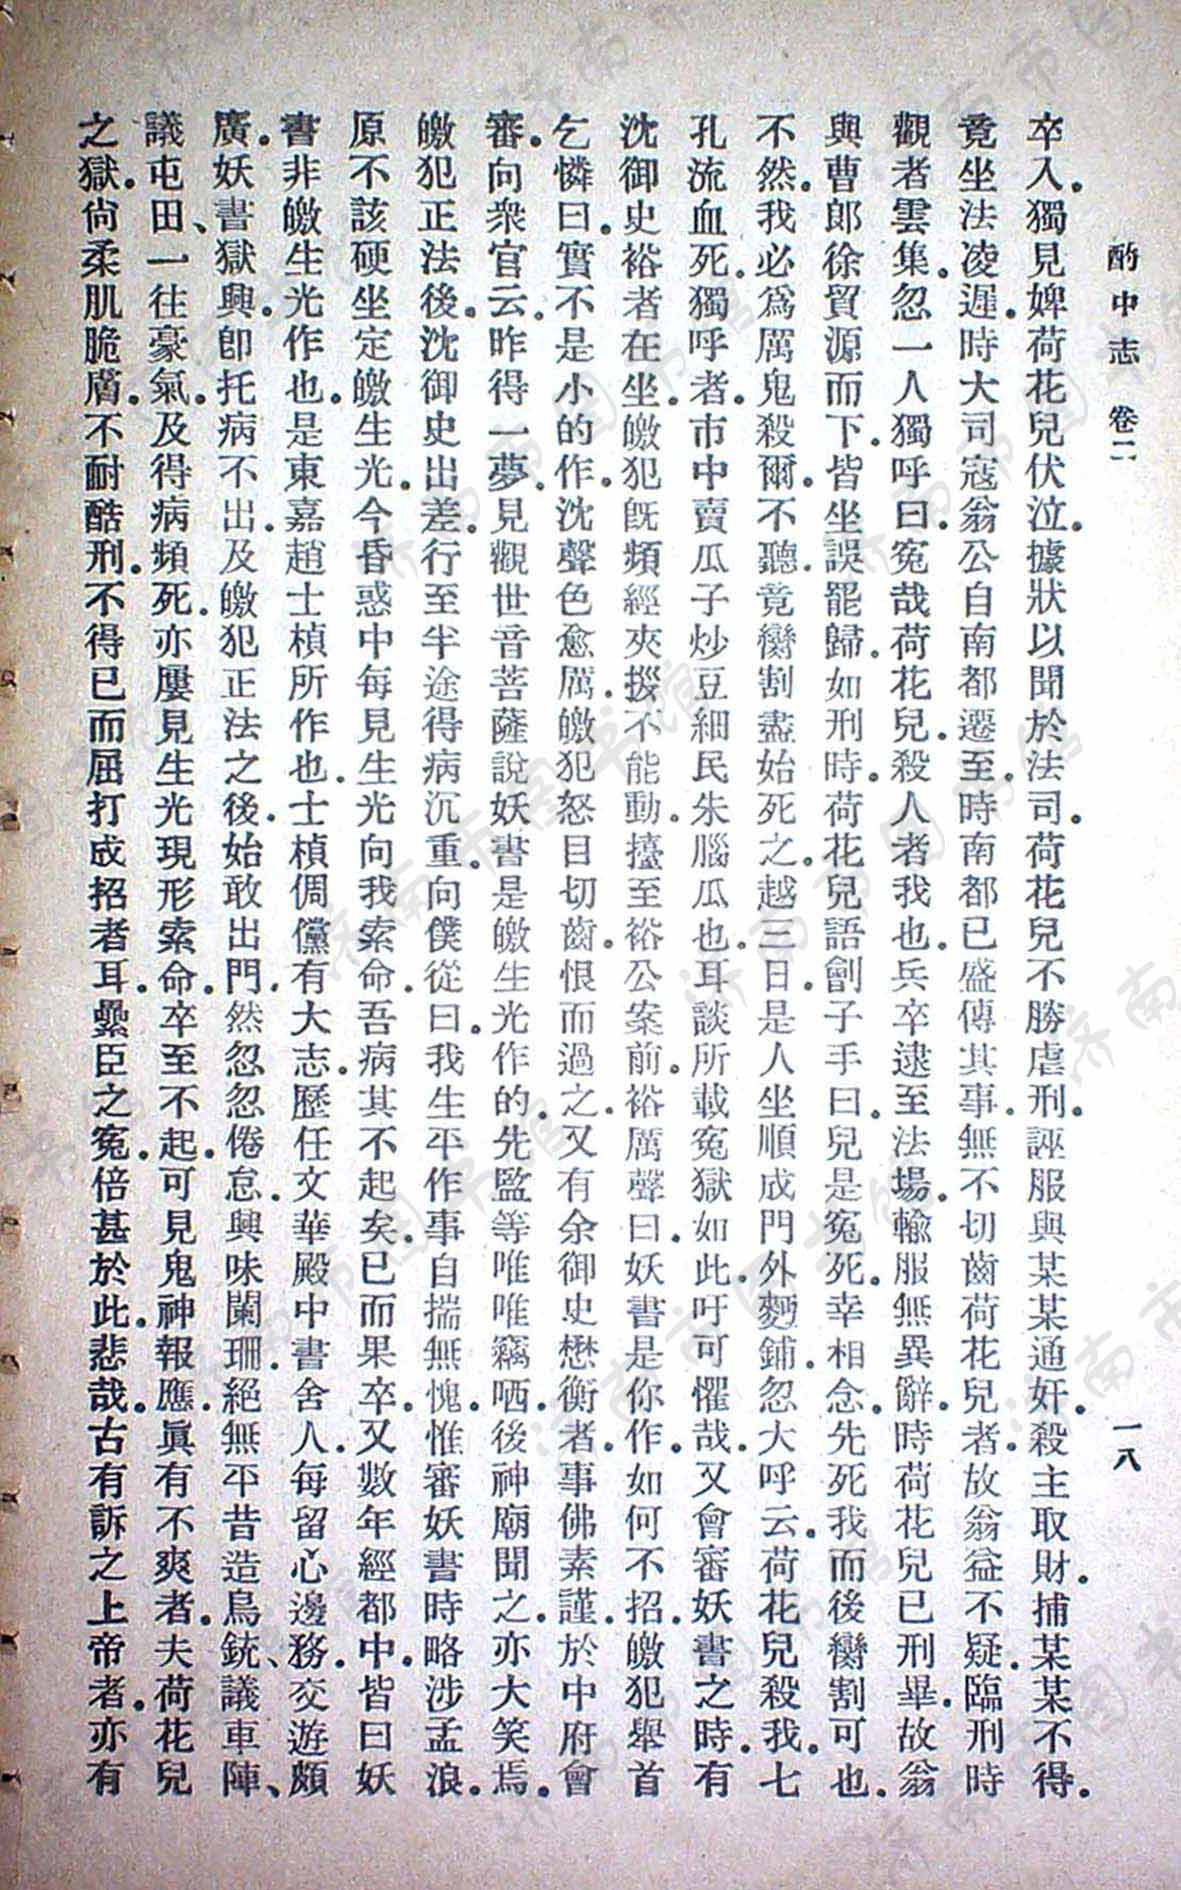 酌中志 卷二 一八
卒入。獨見婢荷花兒伏泣。據狀以聞於法司。荷花兒不勝虐刑。誣服與某某通奸。殺主取財。捕某某不得。
竟坐法凌遲。時大司寇翁公自南都遷至。時南都已盛傳其事。無不切齒荷花兒者。故翁益不疑。臨刑時
觀者雲集。忽一人獨呼曰。冤哉荷花兒。殺人者我也。兵卒逮至法場。輸服無異辭。時荷花兒已刑畢。故翁
與曹郎徐貿源而下。皆坐誤罷歸。如刑時。荷花兒語劊子手曰。兒是冤死。幸相念。先死我而後臠割可也。
不然。我必為厲鬼殺爾。不聽。竟臠割盡始死之。越三日。是人坐順成門外麪鋪。忽大呼云。荷花兒殺我。七
孔流血死。獨呼者。市中賣瓜子炒豆細民朱腦瓜也。耳談所載冤獄如此。吁可懼哉。又會審妖書之時。有
沈御史裕者在坐。皦犯既頻經夾拶不能動。擡至裕公案前。裕厲聲曰。妖書是你作。如何不招。皦犯舉首
乞憐曰。實不是小的作。沈聲色愈厲。皦犯怒目切齒。恨而過之。又有余御史懋衡者。事佛素謹。於中府會
審。向衆官云。昨得一夢。見觀世音菩薩說妖書是皦生光作的。先監等唯唯竊哂。後神廟聞之。亦大笑焉。
皦犯正法後。沈御史出差。行至半途得病沉重。向僕從曰。我生平作事。自揣無愧。惟審妖書時。略涉孟浪。
原不該硬坐定皦生光。今昏惑中每見生光向我索命。吾病其不起矣。已而果卒。又數年經都中。皆曰妖
書非皦生光作也。是東嘉趙士楨所作也。士楨倜儻有大志。歷任文華殿中書舍人。每留心邊務。交遊頗
廣。妖書獄興。卽托病不出。及皦犯正法之後。始敢出門。然忽忽倦怠。興味闌珊。絕無平昔造鳥銃、議車陣、
議屯田、一往豪氣。及得病頻死。亦屢見生光現形索命。卒至不起。可見鬼神報應。眞有不爽者。夫荷花兒
之獄。尙柔肌脆膚。不耐酷刑。不得已而屈打成招者耳。纍臣之冤。倍甚於此。悲哉。古有訴之上帝者。亦有